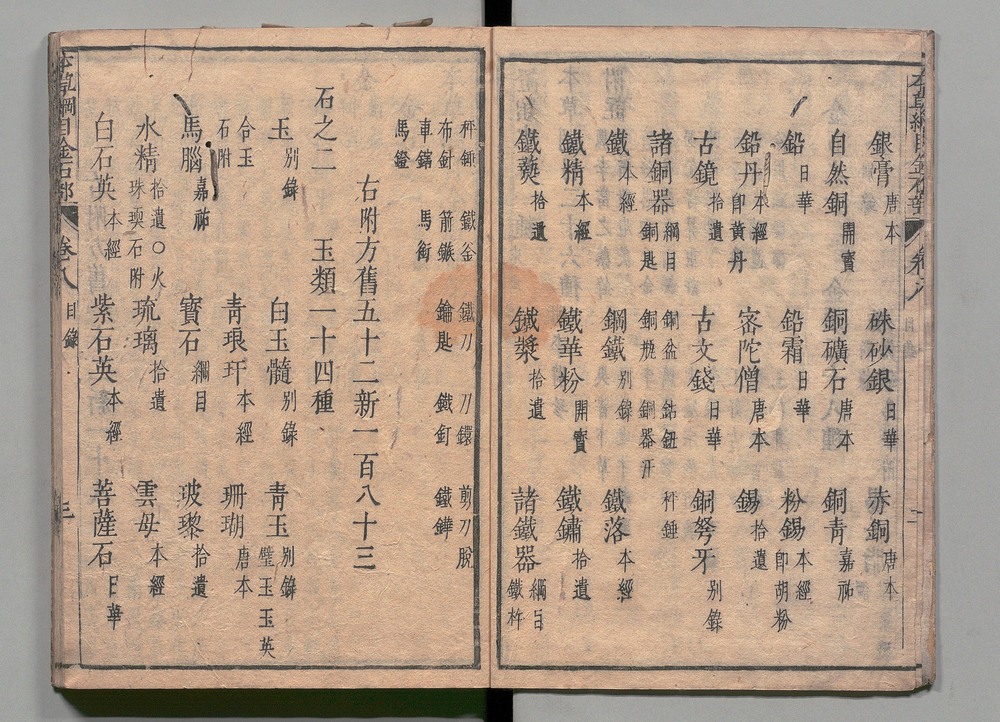 銀膏 唐本 硃砂銀 日華 赤銅 唐本
自然銅 開寶 銅礦石 唐本 銅青 嘉祐
鉛 日華 鉛霜 日華 粉錫 本經 即胡粉
鉛丹 本經 即黃丹 密陀僧 唐本 錫 拾遺
古鏡 拾遺 古文錢 日華 銅弩牙 別錄
諸銅器 綱目 銅匙 銅盆 鈷鉧 銅器汗 秤錘
鐵 本經 鋼鐵 別錄 鐵落 本經
鐵精 本經 鐵華粉 開寶 鐵鏽 拾遺
鐵爇 拾遺 鐵漿 拾遺 諸鐵器 綱目 鐵杵
秤錘 鐵鋸 鐵刀 刀鐶 剪刀股
布針 箭鏃 鑰匙 鐵釘 鐵鏵
車轄 馬銜
馬鐙
右附方舊五十二新一百八十三
石之二 玉類一十四種
玉 別錄 白玉髓 別錄 青玉 別錄 璧玉 玉英
合玉石附 青琅玕 本經 珊瑚 唐本
馬腦 嘉祐 寶石 綱目 玻瓈 拾遺
水精 拾遺 〇火珠 瑌石附 琉璃 拾遺 雲母 本經
白石英 本經 紫石英 本經 菩薩石 日華
本草綱目金石部 卷八 目錄 三